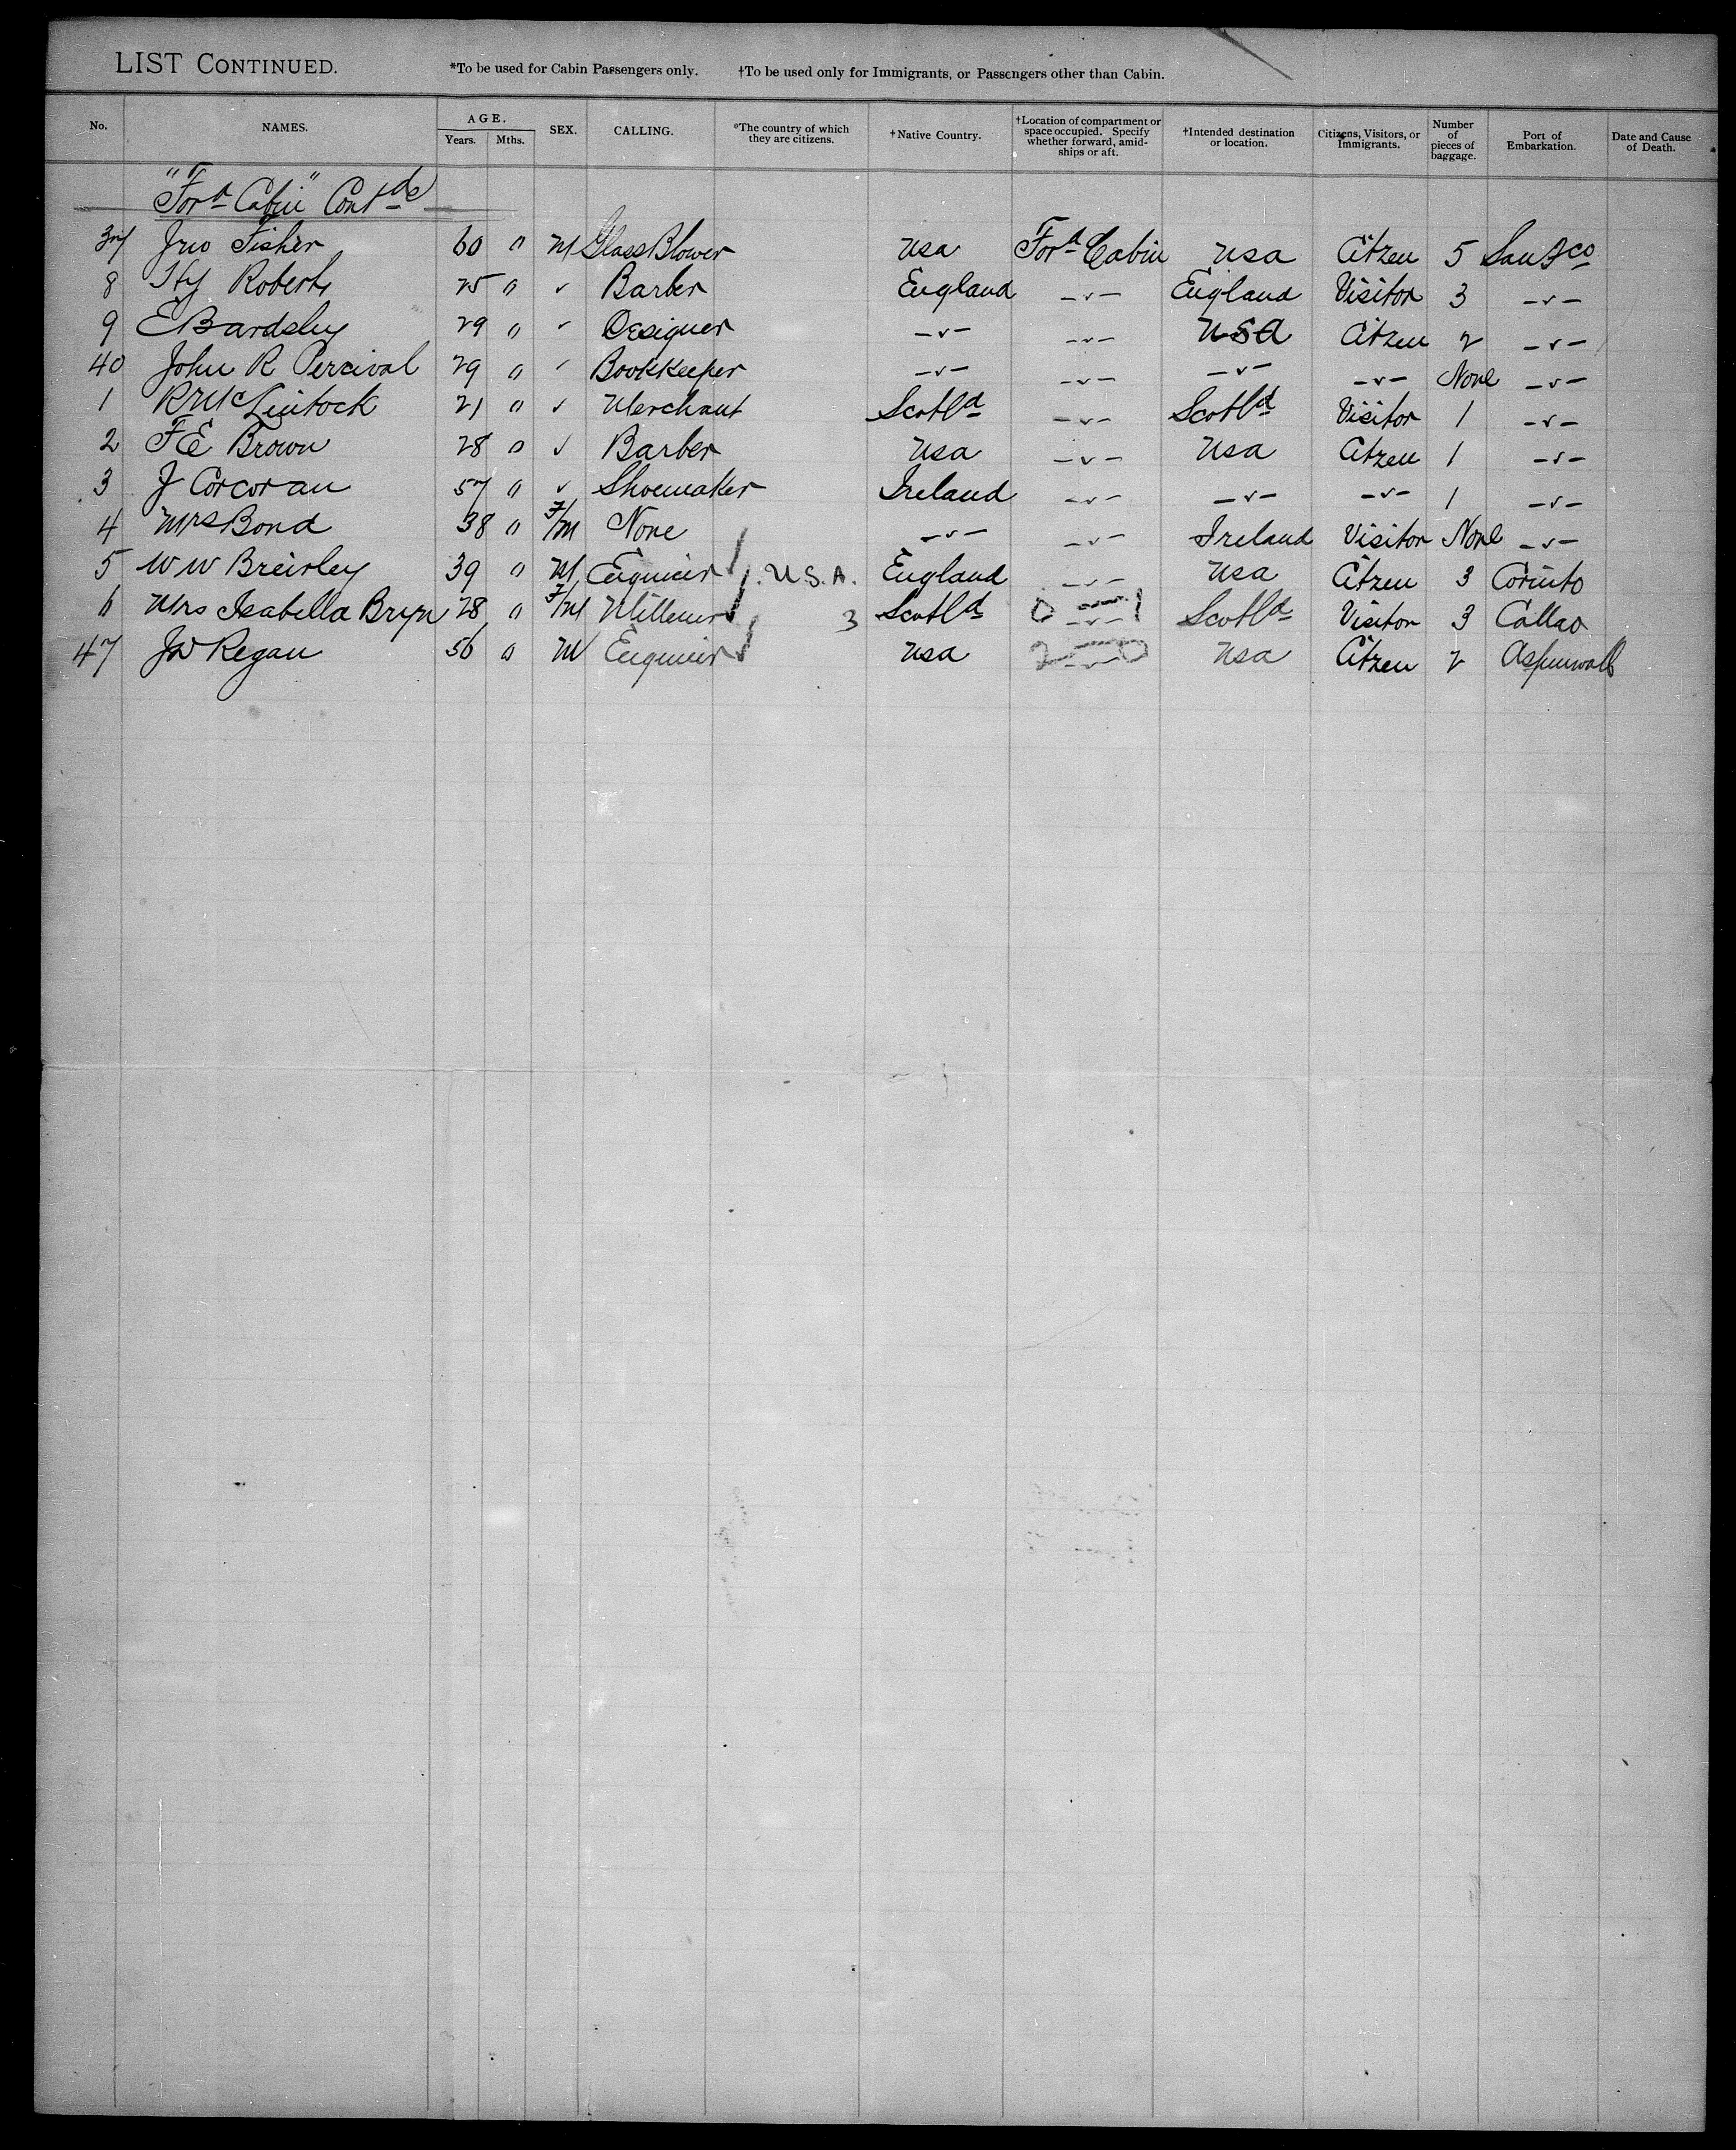 LIST CONTINUED. *To be used for Cabin Passengers only. †To be used only for Immigrants, or Passengers other than Cabin.
No. NAMES. AGE. Years. Mths. SEX. CALLING. *The country of which they are citizens. †Native Country. †Location of compartment or space occupied. Specify whether forward, amid-ships or aft. †Intended destination or location. Citizens, Visitors, or Immigrants. Number of pieces of baggage. Port of Embarkation. Date and Cause of Death.
"For^d Cabin" Cont^d
37 Jno Fisher 60 " M Glass Blower USA For^d Cabin USA Citzen 5 San Fco
8 Hy Roberts 25 " ✓ Barber England -v- England Visitor 3 -v-
9 E Bardsley 29 " ✓ Designer -v- -v- USA Citzen 2 -v-
40 John R Percival 29 " ✓ Bookkeeper -v- -v- -v- -v- None -v-
1 R McLintock 21 " ✓ Merchant Scotl^d -v- Scotl^d Visitor 1 -v-
2 F E Brown 28 " ✓ Barber USA -v- USA Citzen 1 -v-
3 J Corcoran 57 " ✓ Shoemaker Ireland -v- -v- -v- 1 -v-
4 Mrs Bond 38 " F/M None -v- -v- Ireland Visitor None -v-
5 W W Breirley 39 " M Engineer ✓ U.S.A. England -v- USA Citzen 3 Corinto
6 Mrs Isabella Bryn 28 " F/M Milliner ✓ 3 Scotl^d 0 -v- 1 Scotl^d Visitor 3 Callao
47 JW Regan 56 " M Engineer ✓ USA 2 -v- 0 USA Citzen 2 Aspinwall